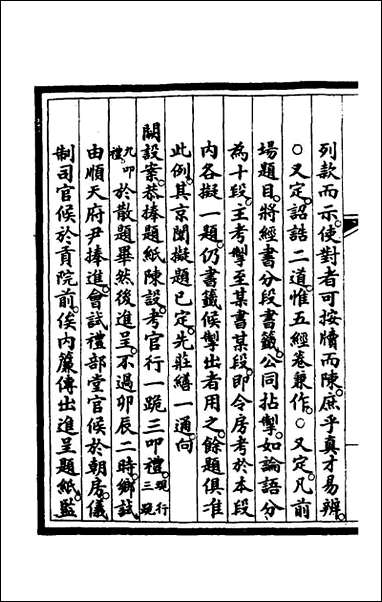 列款而示使對者可按牘而陳庶乎真才易辨
○又定詔誥二道惟五經卷兼作○又定凡前
場題目將經書分段書籤公同拈掣如論語分
為十段主考掣至某書某段即令房考於本段
内各擬一題仍書籤候掣出者用之餘題俱准
此例其京闈擬題已定先莊繕一通向
闕設案恭捧題紙陳設考官行一跪三叩禮現行三跪
九叩禮於散題畢然後進呈不過卯辰二時鄉試
由順天府尹捧進會試禮部堂官候於朝房儀
制司官候於貢院前俟内簾傳出進呈題紙監